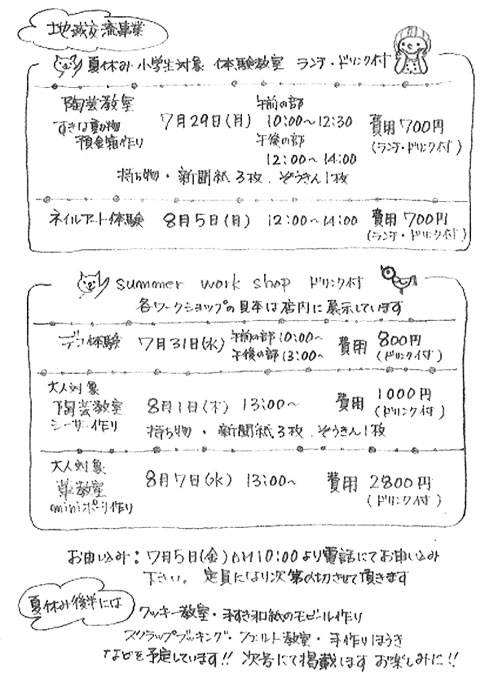 地域交流事業
夏休み 小学生対象 体験教室 ランチ・ドリンク付
陶芸教室
すきな動物
預金箱作り
7月29日(月)
午前の部
10:00~12:30
午後の部
12:00~14:00
費用 700円
(ランチ・ドリンク付)
持ち物・新聞紙3枚、ぞうきん1枚
ネイルアート体験 8月5日(月) 12:00~14:00 費用 700円
(ランチ・ドリンク付)
summer work shop ドリンク付
各ワークショップの見本は店内に展示しています
デコ体験 7月31日(水) 午前の部10:00~
午後の部13:00~
費用 800円
(ドリンク付)
大人対象
陶芸教室
シーサー作り
8月1日(木) 13:00~
費用 1000円
(ドリンク付)
持ち物・新聞紙3枚、ぞうきん1枚
大人対象
革教室
miniポーチ作り
8月7日(水) 13:00~
費用 2800円
(ドリンク付)
お申い込み:7月5日(金)AM10:00より電話にてお申い込み
下さい。定員になり次第〆切させて頂きます
夏休み後半には
クッキー教室・手すき和紙のモビール作り
スクラップブッキング・フェルト教室・手作りほうき
などを予定しています!! 次号にて掲載します お楽しみに!!